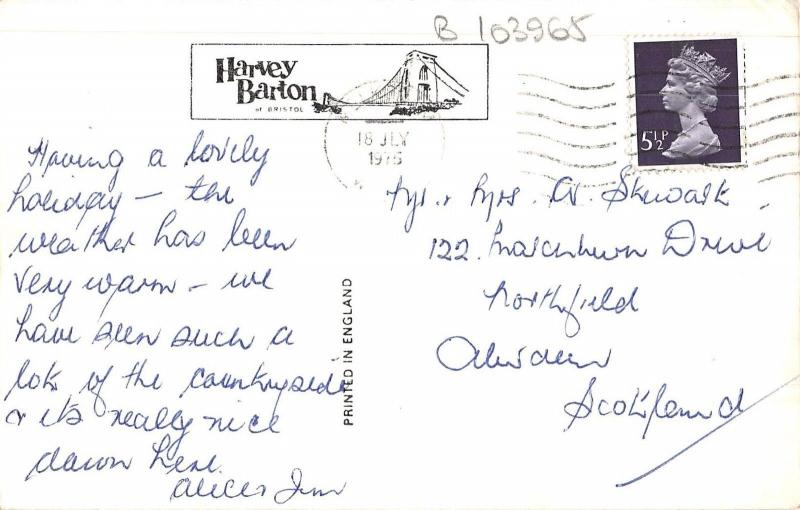 B 103965
Harvey
Barton
of BRISTOL
18 JLY
1975
5½P
Having a lovely
holiday – the
weather has been
very warm – we
have seen such a
lot of the countryside
& its really nice
down here.
Alice & Jim
PRINTED IN ENGLAND
Mr. & Mrs. A. Stewart
122. Drive
Northfield
Aberdeen
Scotland